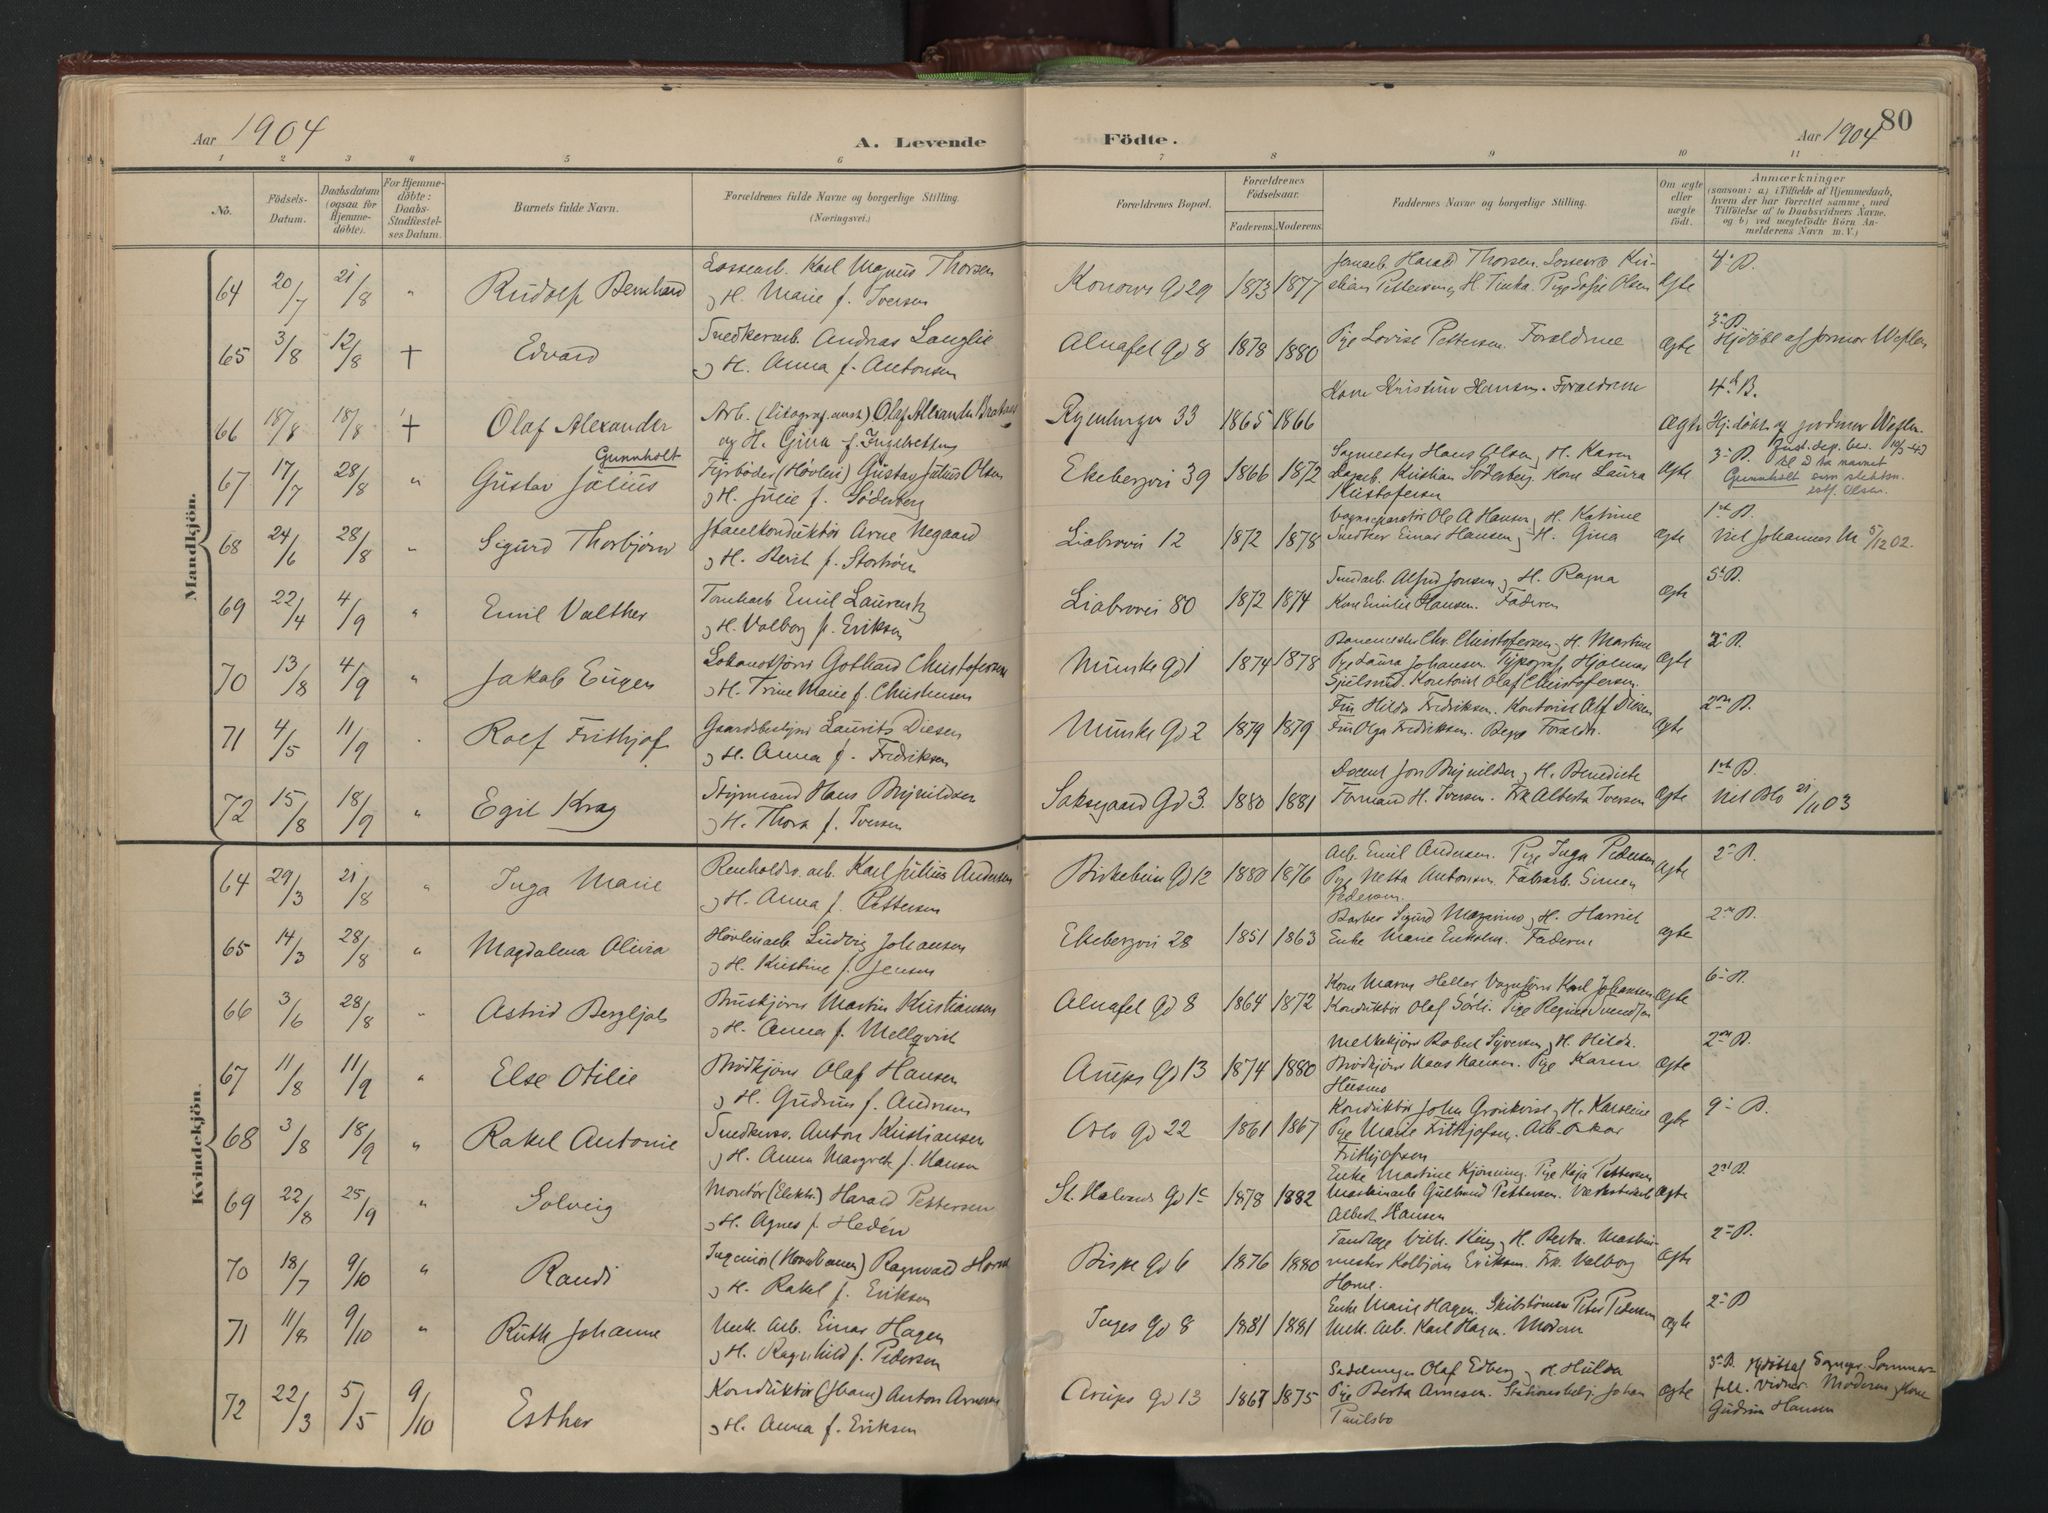 80
Aar 1904
A. Levende
Födte.
Aar 1904
1 2 3 4 5 6 7 8 9 10 11
No.
Födsels-
Datum.
Daabsdatum
(ogsaa for
Hjemme-
döbte).
For Hjemme-
döbte:
Daabs-
Stadfæstel-
ses Datum.
Barnets fulde Navn.
Forældrenes fulde Navne og borgerlige Stilling.
(Næringsvei.)
Forældrenes Bopæl.
Forældrenes
Födselsaar.
Faderens. Moderens.
Faddernes Navne og borgerlige Stilling.
Om ægte
eller
uægte
født.
Anmærkninger
(saasom: a) i Tilfælde af Hjemmedaab,
hvem der har forrettet samme, med
Tilföielse af to Daabsvidners Navne,
og b) ved uægtefödte Börn An-
melderens Navn m. V.)
Mandkjön.
64 20/7 21/8 " Rudolf Bernhard
Lossearb. Karl Magnus Thorsen
og H. Marie f. Iversen
Konows Gd 29 1873 1877
Harald Thorsen.
Pettersen og H. Tinka. Pige Sofie Olsen
ægte
4de B.
65 3/8 12/8 † Edvard
Snedkerarb. Andreas Langlie
og H. Anna f. Antonsen
Alnafel Gd 8 1878 1880
Pige Lovise Pettersen. Forældrene
ægte
3die B.
Hjdöbt af jormor Westlen
66 18/8 18/8 † Olaf Alexander
Arb. Olaf Alexander
og H. Gina f. Ingebretsen
Ryenbergn 33 1865 1866
Kone Kristine Hansen. Forældrene
ægte
4de B.
Hj. döbt af jordmor Westlen.
67 17/7 28/8 " Gustav Julius
Gunnholt
Fyrböder (Hövleri) Gustav Julius Olsen
og H. Julie f. Söderberg
Ekebergvei 39 1866 1872
Sagmester Hans Olsen og H. Karen
Kristian Söderberg. Kone Laura
Kristofersen
ægte
3die B.
Just. dep. bev. 10/5-43
til å ta navnet
Gunnholt som slektsn.
istf. Olsen.
68 24/6 28/8 " Sigurd Thorbjörn
Arne Negaard
og H. Berit f.
Liabrovei 12 1872 1878
Ole A Hansen og H. Katrine
Snedker Einar Hansen og H. Gina
ægte
1ste B.
Viet Johannes M 5/12 02.
69 22/4 4/9 " Emil Valther
Tomtearb Emil Laurentz
og H. Valborg f. Eriksen
Liabrovei 80 1872 1874
Alfred Jonsen og H. Ragna
Kone Emilie Hansen. Faderen
ægte
5te B.
70 13/8 4/9 " Jakob Eugen
Lokomotförer Gothard Christofersen
og H. Trine Marie f. Christensen
Munke gd 1 1874 1878
Banemester Chr. Christofersen og H. Martine
Pige Laura Johansen. Typograf Hjalmar
Kontorist Olaf Christofersen.
ægte
2. B.
71 4/5 11/9 Rolf Frithjof
Gaardsbestyrer Laurits Diesen
og H. Anna f. Fredriksen
Munke Gd 2 1879 1879
Frk Hilda Fredriksen. Kontorist Alf Diesen
Frk Olga Fredriksen. Begge Foræld.
ægte
2den B.
72 15/8 18/9 " Egil Krag
Styrmand Hans Brynildsen
og H. Thora f. Iversen
Saxegaard Gd 3. 1880 1881
Docent Jon Brynildsen og H. Benedicte
Formand H. Iversen. Frk Alberta Iversen
ægte
1ste B.
Viet Oslo 21/11 03
Kvindekjön.
64 29/3 21/8 " Inga Marie
Renholds. arb. Karl Julius Andersen
og H. Anna f. Pettersen
Birkebein Gd 12 1880 1876
Arb. Emil Andersen. Pige Inga Pedersen
Pige Netta Antonsen. Fabrarb. Simen
Pedersen.
ægte
2. B.
65 14/3 28/8 " Magdalena Olivia
Hövleriarb Ludvig Johansen
og H. Kristine f. Jensen
Ekebergvei 28 1851 1863
Barber Sigurd og H. Harriet
Enke Marie Faderen
ægte
2den B.
66 3/6 28/8 " Astrid Bergljot
Bruskjörer Martin Kristiansen
og H. Anna f. Mellqvist
Alnafel Gd 8 1864 1872
Kone Maren Heller Vognförer Karl Johansen
Konduktör Olaf Sörli. Pige Regine Svendsen
ægte
6. B.
67 11/8 11/9 " Else Otilie
Brödkjörer Olaf Hansen
og H. Gudrun f. Andersen
Arups Gd 13 1874 1880
Melkekjörer Robert Syversen og H. Hilda.
Brödkjörer Hans Hansen. Pige Karen
ægte
2den B.
68 3/8 18/9 " Rakel Antonie
Snedkersv. Anton Kristiansen
og H. Anna Margrete f. Hansen
Oslo Gd 22 1861 1867
Konduktör John Grönkvist og H. Karoline
Pige Marie Frithjofsen. Arb. Oskar
Frithjofsen
ægte
9. B.
69 22/8 25/9 " Solveig
Montör (Elektr.) Harald Pettersen
og H. Agnes f. Hedén
St. Halvards Gd 1c 1878 1882
Enke Martine Kjönning. Pige Kaja Pettersen
Maskinarb Gulbrand Pettersen. Værkstedarb
Albert Hansen
ægte
2den B.
70 18/7 9/10 " Randi
Ingeniör (Hovedbanen) Ragnvald Horne
og H. Rakel f. Eriksen
Bispe Gd 6 1876 1880
Tandlæge Vilh. King og H. Berta. Maskin-
mester Kolbjörn Eriksen. Frk. Valborg
Horne.
ægte
2. B.
71 11/8 9/10 " Ruth Johanne
Mek. Arb. Einar Hagen
og H. Ragnhild f. Pedersen
Inges Gd 8 1881 1881
Enke Marie Hagen. Skibstömmer Peter Pedersen
Mek. Arb. Karl Hagen. Moderen
ægte
2. B
72 22/3 5/5 9/10 Esther
Konduktör (Jban) Anton Arnesen
og H. Anna f. Eriksen
Arups Gd 13 1867 1875
Sadelmager Olaf Edberg og H. Hulda
Pige Berta Arnesen. Stationsbetj. Johan
Paulsbo
ægte
3. B. Hjdöbt af Sogнepr. Sommer-
felt. Vidner Moderen og Kone
Gudrun Hansen